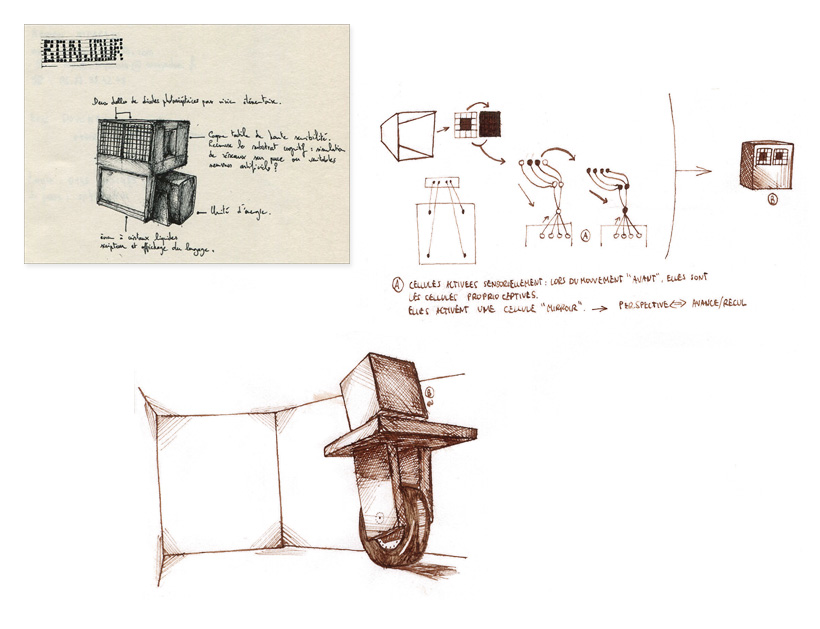 BONJOUR
Deux dalles de diodes photosensibles pour vision élémentaire.
Coque tactile de haute sensibilité.
le substrat cognitif : simulation
de réseaux sur puce ou véritables
neurones artificiels ?
Unité d'énergie.
écran à cristaux liquides
et affichage du langage.
A
B
A CELLULES ACTIVEES SENSORIELLEMENT : LORS DU MOUVEMENT "AVANT". ELLES SONT
LES CELLULES PROPRIOCEPTIVES.
ELLES ACTIVENT UNE CELLULE "MIRROIR". → PERSPECTIVE ⇔ AVANCE/RECUL
B